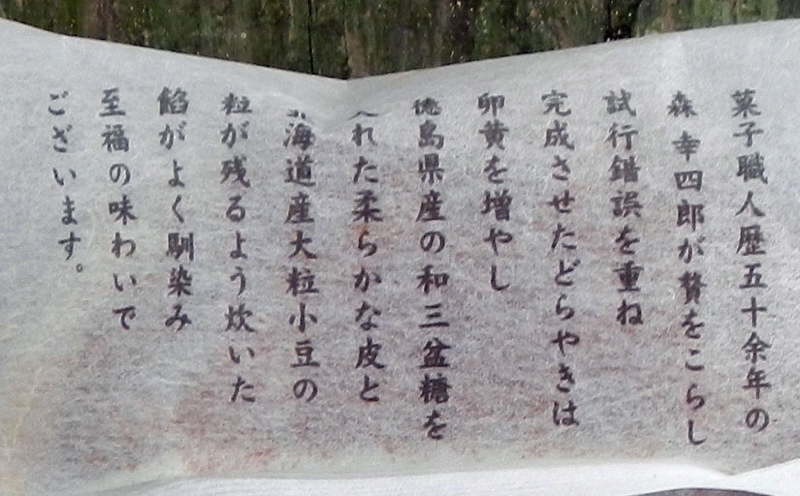 菓子職人歴五十余年の
森 幸四郎が贅をこらし
試行錯誤を重ね
完成させたどらやきは
卵黄を増やし
徳島県産の和三盆糖を
入れた柔らかな皮と
北海道産大粒小豆の
粒が残るよう炊いた
餡がよく馴染み
至福の味わいで
ございます。